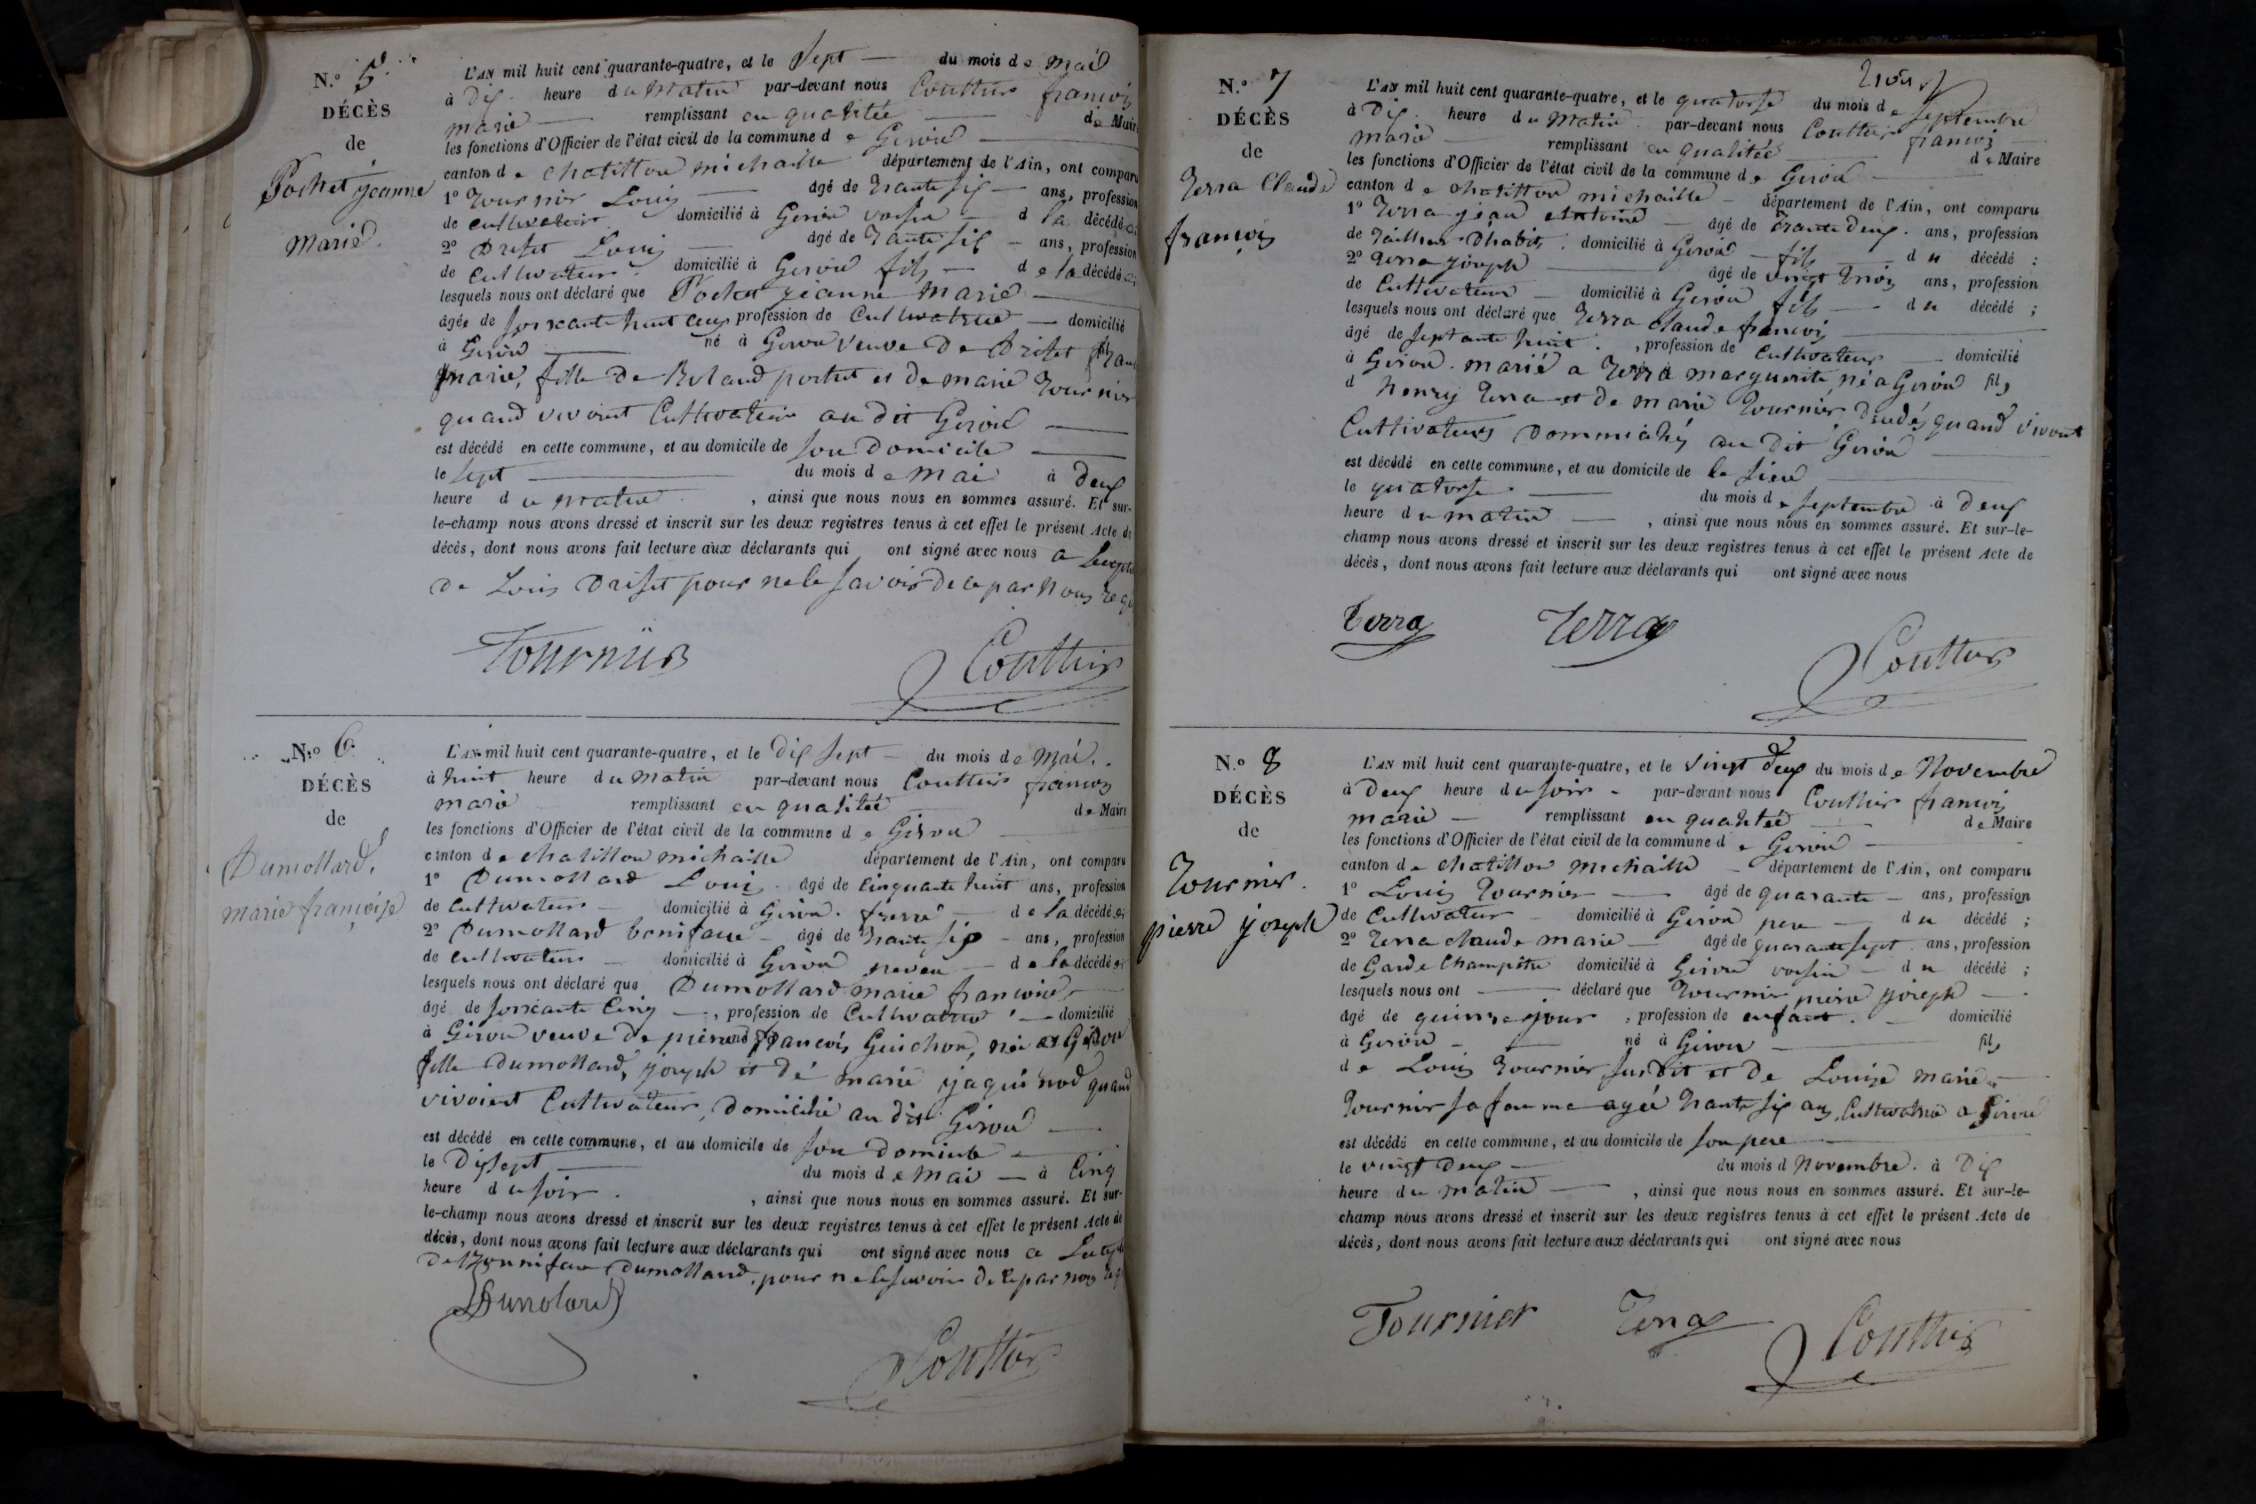 N.º 5
DÉCÈS
de
Pochet jeanne
marie.
L'AN mil huit cent quarante-quatre, et le sept du mois de mai
à dix heure du matin par-devant nous Couttier françois
marie remplissant en qualitée de Maire
les fonctions d'Officier de l'état civil de la commune de Giron
canton de chatillon michaille département de l'Ain, ont comparu
1º Tournier Louis âgé de trante six ans, profession
de cultivateur domicilié à Giron voisin d la décédée
2º Driset Louis âgé de trante six ans, profession
de Cultivateur domicilié à Giron fils de la décédée
lesquels nous ont déclaré que Pochet jeanne marie
âgée de soixante huit ans profession de Cultivatrice domicilié
à Giron né à Giron veuve de Driset
marie, fille de Roland pochet et de marie Tournier
quand vivoint Cultivateur au dit Giron
est décédé en cette commune, et au domicile de son domicile
le sept du mois de mai à deux
heure du matin, ainsi que nous nous en sommes assuré. Et sur-
le-champ nous avons dressé et inscrit sur les deux registres tenus à cet effet le présent Acte de
décès, dont nous avons fait lecture aux déclarants qui ont signé avec nous a
de Louis Driset pour ne le savoir de ce par nous
Tournier Couttier
N.º 6
DÉCÈS
de
Dumollard,
marie françoise
L'AN mil huit cent quarante-quatre, et le dix sept du mois de Mai.
à huit heure du matin par-devant nous Couttier françois
marie remplissant en qualitée de Maire
les fonctions d'Officier de l'état civil de la commune de Giron
canton de chatillon michaille département de l'Ain, ont comparu
1º Dumollard Louis âgé de Cinquante huit ans, profession
de Cultivateur domicilié à Giron frerre de la décédée
2º Dumollard boniface âgé de trante six ans, profession
de cultivateur domicilié à Giron neveu de la décédée
lesquels nous ont déclaré que Dumollard marie françoise
âgé de soixante Cinq, profession de Cultivatrice domicilié
à Giron veuve de pierre françois Guichon, née a Giron
fille Dumollard, joseph et de marie nod quand
vivoient Cultivateur, domicilié au dit Giron
est décédé en cette commune, et au domicile de son domicile
le dixsept du mois de mai à Cinq
heure du soir, ainsi que nous nous en sommes assuré. Et sur-
le-champ nous avons dressé et inscrit sur les deux registres tenus à cet effet le présent Acte de
décès, dont nous avons fait lecture aux déclarants qui ont signé avec nous a
de Bonniface Dumollard, pour ne le savoir de ce par nous
Dumolard
Couttier
N.º 7
DÉCÈS
de
Terra Claude
françois
L'AN mil huit cent quarante-quatre, et le quatorse du mois de septembre
à dix heure du matin par-devant nous Couttier françois
marie remplissant en qualitée de Maire
les fonctions d'Officier de l'état civil de la commune de Giron
canton de chatillon michaille département de l'Ain, ont comparu
1º Terra jean antoine âgé de trante deux ans, profession
de tailleur d'habits domicilié à Giron fils du décédé ;
2º Terra joseph âgé de vingt trois ans, profession
de Cultivateur domicilié à Giron fils du décédé ;
lesquels nous ont déclaré que Terra claude françois
âgé de septante huit, profession de Cultivateur domicilié
à Giron. marié a Terra marguerite, né a Giron fils
d henry Terra et de marie Tournier quand vivoint
Cultivateurs dommiciliés au dit Giron
est décédé en cette commune, et au domicile de le sien
le quatorse du mois de septembre à deux
heure du matin, ainsi que nous nous en sommes assuré. Et sur-le-
champ nous avons dressé et inscrit sur les deux registres tenus à cet effet le présent Acte de
décès, dont nous avons fait lecture aux déclarants qui ont signé avec nous
Terra Terra Couttier
N.º 8
DÉCÈS
de
Tournier.
pierre joseph
L'AN mil huit cent quarante-quatre, et le vingt deux du mois de Novembre
à deux heure du soir par-devant nous Couttier françois
marie remplissant en qualitée de Maire
les fonctions d'Officier de l'état civil de la commune de Giron
canton de chatillon michaille département de l'Ain, ont comparu
1º Louis Tournier âgé de quarante ans, profession
de Cultivateur domicilié à Giron pere du décédé ;
2º Terra claude marie âgé de quarante sept ans, profession
de Garde Champêtre domicilié à Giron voisin du décédé ;
lesquels nous ont déclaré que Tournier pierre joseph
âgé de quinse jour, profession de enfant. domicilié
à Giron né à Giron fils
de Louis Tournier susdit et de Louise marie
Tournier sa famme agée trante six ans, Cultivatrice a Giron
est décédé en cette commune, et au domicile de son pere
le vingt deux du mois d Novembre. à dix
heure du matin, ainsi que nous nous en sommes assuré. Et sur-le-
champ nous avons dressé et inscrit sur les deux registres tenus à cet effet le présent Acte de
décès, dont nous avons fait lecture aux déclarants qui ont signé avec nous
Tournier Terra Couttier